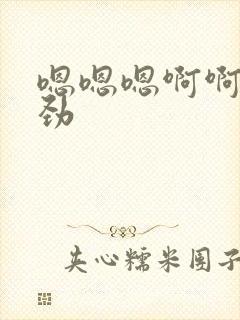 嗯嗯嗯啊啊
劲
夹心糯米团子